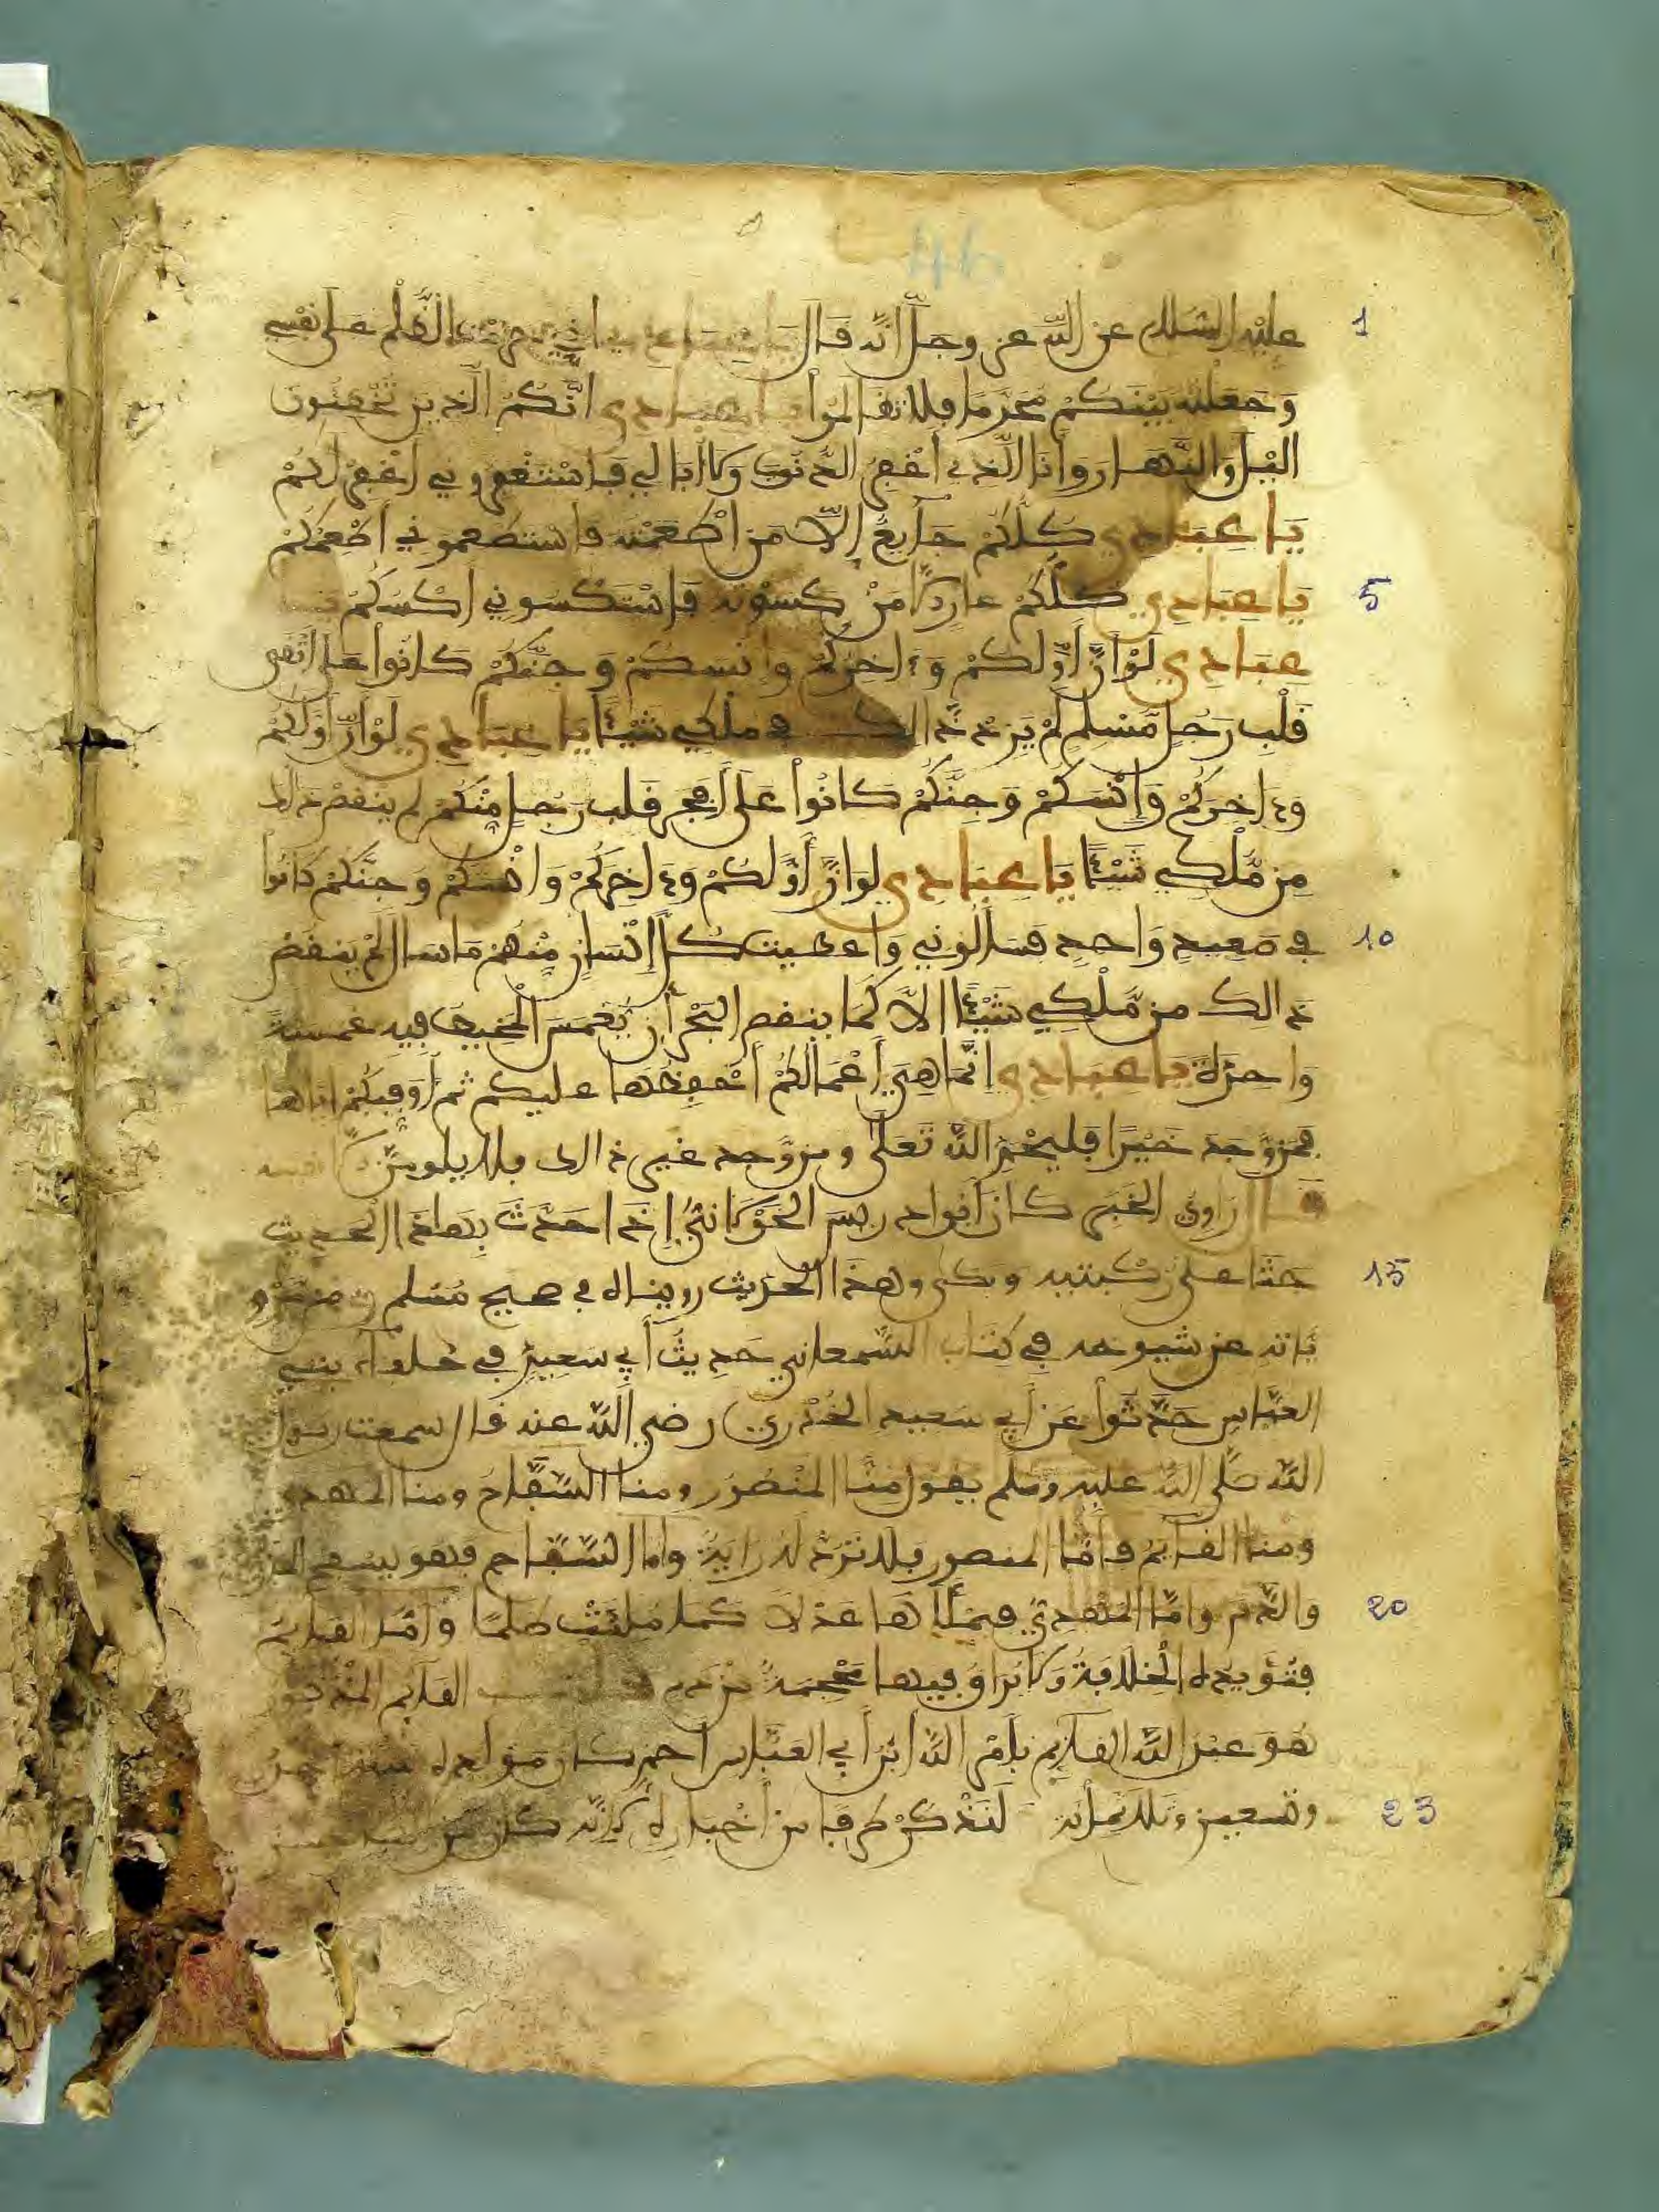 46
1 عليه السلام عن الله عز وجل انه قال يا عبادي اني حرمت الظلم على نفسي
وجعلته بينكم محرما فلا تظالموا يا عبادي انكم الذين تخطئون
اليل والنهار وأنا الذي أغفر الذنوب ولا ابالي فاستغفروني اغفر لكم
يا عبادي كلكم جآيع إلا من اطعمته فاستطعموني اطعمكم
5 يا عبادي كلكم عار الا من كسوته فاستكسوني اكسكم يا
عبادي لو ان أولكم وءاخركم وإنسكم وجنكم كانوا على أتقى
قلب رجل مسلم لم يزد ذالك في ملكي شيئا يا عبادي لو ان أولكم
وءاخركم وإنسكم وجنكم كانوا على أفجر قلب رجل منكم لم ينقص ذالك
من ملكي شيئا يا عبادي لو ان أولكم وءاخركم وانسكم وجنكم كانوا
10 في صعيد واحد فسألوني واعطيت كل إنسان منهم ما سال لم ينقص
ذالك من ملكي شيئا الا كما ينقص البحر أن يغمس المخيط فيه غمسة
واحدة يا عبادي إنما هي أعمالكم أحفظها عليكم ثم أوفيكم اياها
فمن وجد خيرا فليحمد الله تعلى ومن وجد غير ذالك فلا يلومن الا نفسه
قال راوي الخبر كان أبو ادريس الخولاني إذا حدث بهاذا الحديث
15 جثا على ركبتيه وبكى وهذا الحديث رويناه في صحيح مسلم
بانه عن شيوخه في كتاب السمعاني حديث أبي سعيد في خلفاء بني
العباس حدثوا عن أبي سعيد الخدري رضي الله عنه قال سمعت رسول
الله صلى الله عليه وسلم يقول منا المنصور ومنا السفاح ومنا المهدي
ومنا القايم فأما المنصور فلا ترد له راية واما السفاح فهو يسفح المال
20 والدم واما المهدي فيملأها عدلا كما ملئت ظلما وأما القايم
فتؤيده الخلافة ولا يراق فيها محجمة من دم القايم المذكور
هو عبد الله القايم بامر الله ابن أبي العباس أحمد كان مولده سنة
23 وتسعين وثلاثمائة لنذكر طرفا من أخباره لانه كان من